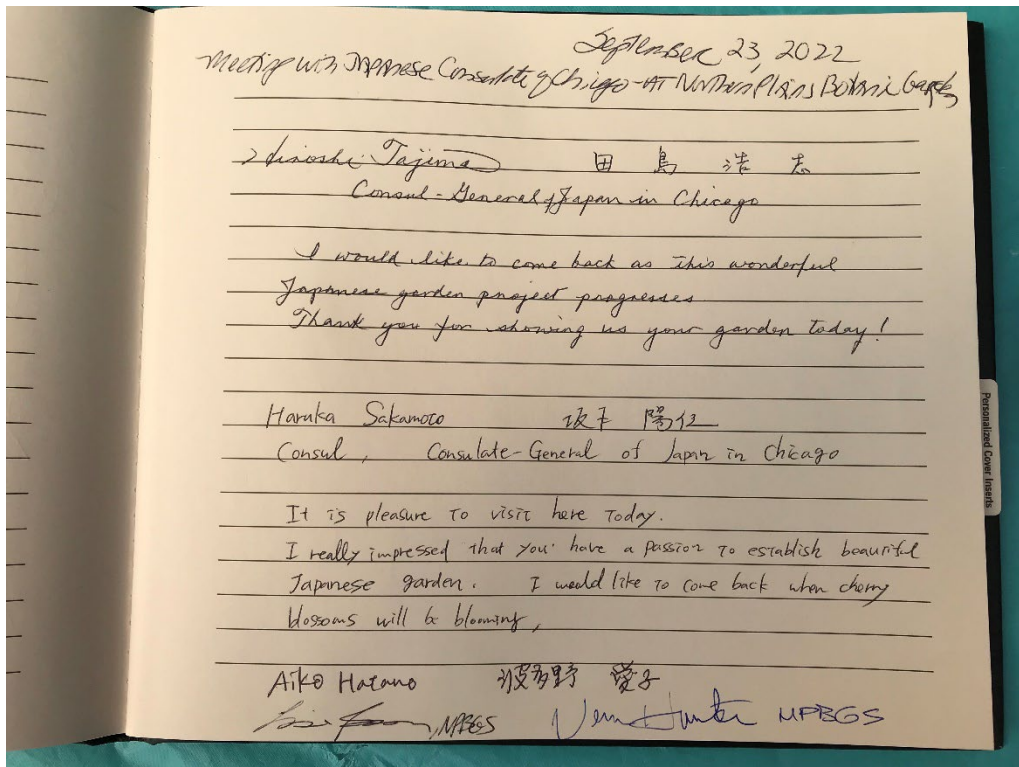 September 23, 2022
Meeting with Japanese Consulate of Chicago - AT Northern Plains Botanic Garden
Hiroshi Tajima 田島 浩志
Consul-General of Japan in Chicago
I would like to come back as this wonderful
Japanese garden project progresses
Thank you for showing us your garden today!
Haruka Sakamoto 坂本
Consul, Consulate-General of Japan in Chicago
It is pleasure to visit here today.
I really impressed that you have a passion to establish beautiful
Japanese garden. I would like to come back when cherry
blossoms will be blooming,
Aiko Hatano 波多野 愛子
, NPBGS Vern Hunter NPBGS
Personalized Cover Inserts